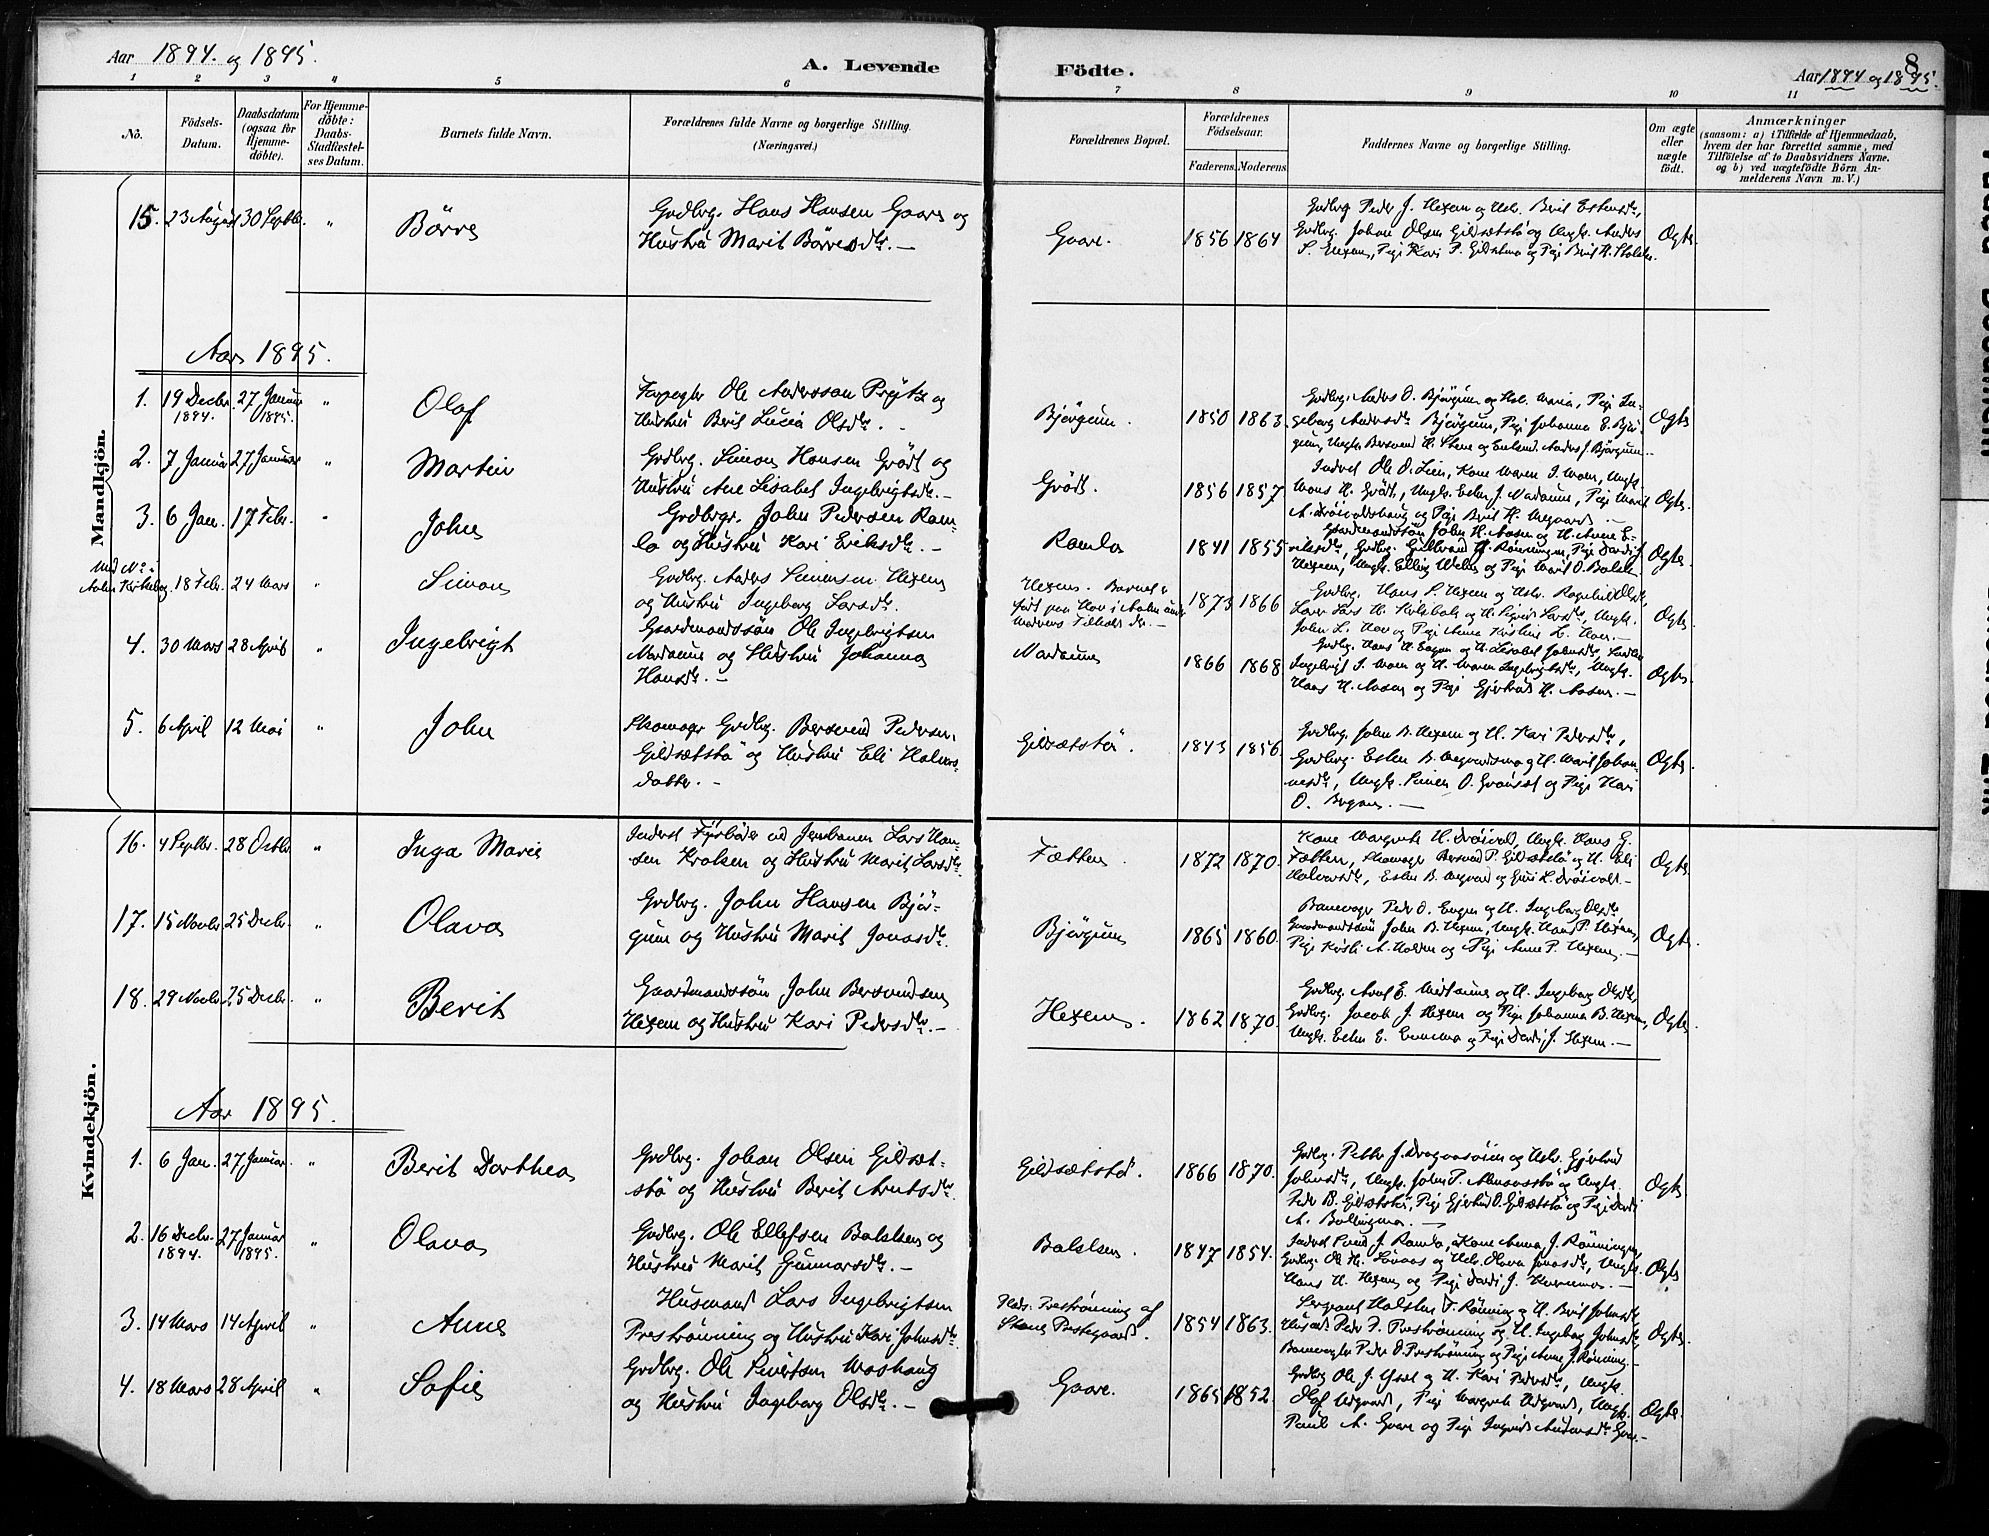 Aar 1894. og 1895.
A. Levende Födte.
8
Aar 1894 og 1895.
1 2 3 4 5 6 7 8 9 10 11
No.
Födsels-Datum.
Daabsdatum (ogsaa for Hjemme-döbte).
For Hjemme-döbte: Daabs-Stadfæstel-ses Datum.
Barnets fulde Navn.
Forældrenes fulde Navne og borgerlige Stilling.
(Næringsvei.)
Forældrenes Bopæl.
Forældrenes Födselsaar.
Faderens. Moderens.
Faddernes Navne og borgerlige Stilling.
Om ægte eller uægte födt.
Anmærkninger
(saasom: a) i Tilfælde af Hjemmedaab,
hvem der har forrettet samme, med
Tilföielse af to Daabsvidners Navne.
og b) ved uægtefödte Börn An-
melderens Navn m. V.)
Mandkjön.
15. 23 August 30 Septbr. " Börre
Grdbrg. Hans Hansen Gaare og
Hustru Marit Börresdtr. —
Gaare. 1856 1864
Grdbrg. Peder J. Hexem og Ustr. Berit Estensdtr,
Grdbrg. Johan Olsen Gildsætstö og Ungk. Anders
Ægte.
Aar 1895.
1. 19 Decbr. 1894. 27 Januar 1895. " Olaf
Ole Anderssøn Prytz og
Hustru Berit Lucia Olsdtr.
Björgum. 1850 1863.
Grdbrg. Anders O. Björgum og Maria, Pige In-
geborg Andersdtr Björgum, Pige Johanna E. Björ-
gum, Ungk. Bersvend H. Stene og Anders J. Björgum.
Ægte
2. 7 Januar 27 Januar " Martin
Grdbrg. Simon Hansen Grödt og
Hustru Ane Lisabet Ingebrigtsdtr. —
Grödt. 1856 1857.
Inderst Ole O. Lien, Kone Maren I. Moen, Ungk.
Hans H. Grödt, Ungk. Esten J. Mardaune, Pige Marit
Ægte.
3. 6 Jan. 17 Febr. " John
Grdbrgr. John Pedersen Ram-
lo og Hustru Kari Eriksdtr. —
Ramlo 1841 1855
Gaardmandssön John H. Aasen og H. Anne E-
riksdtr, Grdbrg. Gulbrand H. Rönningen, Pige Dordi J.
Hexem, Ungk. Elling Welve og Pige Marit O. Balslen
Ægte.
Ved No. i
Aalen Kirkebog. 18 Febr. 24 Mars " Simon
Grdbrg. Anders Simonsen Hexem
og Hustru Ingeborg Larsdtr.
Hexem. Barnet er
födt paa Hov i Aalen
Modrens Tilhold der. —
1873 1866
Grdbrg. Hans S. Hexem og Ustr. Ragnhild Olsdtr,
John L. Hov og Pige Anne Kristine L. Hov. —
Ægte.
4. 30 Mars 28 April " Ingebrigt
Gaardmandssön Ole Ingebrigtsen
Mardaune og Hustru Johanna
Hansdtr. —
Mardaune 1866 1868
Grdbrg. Hans H. Aasen og H. Lisabet Johnsdtr,
Ingebrigt S. Moen og H. Maren Ingebrigtsdtr, Ungk.
Hans H. Aasen og Pige Gjertrud H. Aasen. —
Ægte.
5. 6 April 12 Mai " John
Skomager Grdbrg. Bersvend Pedersen
Gildsætstö og Hustru Eli Halvors-
datter. —
Gildsætstö. 1843 1856.
Grdbrg. John B. Hexem og H. Kari Pedersdtr,
Grdbrg. Esten B. Aegardsmo og H. Marit Johan-
nesdtr, Ungk. Simen O. Graasæt og Pige Kari
O. Bogen. —
Ægte.
Kvindekjön.
16. 4 Septbr. 28 Octbr. " Inga Marie
Inderst Fyrböder ved Jernbanen Lars Han-
sen Kroken og Hustru Marit Larsdtr.
Fætten. 1872 1870.
Kone Margrete H. Dröivold, Ungk. Hans G.
Fætten, Skomager Bersvend P. Gildsætstö og H. Eli
Halvorsdtr, Esten B. Aegard og Guri K. Dröivold —
Ægte.
17. 15 Novbr. 25 Decbr. " Olava
Grdbrg. John Hansen Björ-
gum og Hustru Marit Jonasdtr.
Björgum 1865 1860.
Banevogter Peder O. Engen og H. Ingeborg Olsdtr,
Gaardmandssön John B. Hexem, Ungk. Hans P. Hexem,
Pige Kirsti A. Holden og Pige Anne P. Hexem. —
Ægte.
18. 29 Novbr. 25 Decbr. " Berit
Gaardmandssön John Bersvendsen
Hexem og Hustru Kari Pedersdtr. —
Hexem. 1862 1870.
Grdbrg. Arnt E. Midtaune og H. Ingeborg Olsdtr,
Grdbrg. Jacob J. Hexem og Pige Johanna B. Hexem,
Ungk. Esten E. Emmo og Pige Dordi J. Hexem. —
Ægte
Aar 1895.
1. 6 Jan. 27 Januar. " Berit Dorthea
Grdbrg. Johan Olsen Gildsæt-
stö og Hustru Berit Arntsdtr.
Gildsætstö. 1866 1870.
Grdbrg. Petter J. Dragaasöien og Ustr. Gjertrud
Johnsdtr, Ungk. John P. Almaasstö og Ungk.
Peder B. Gildsætstö, Pige Gjertrud O. Gildsætstö og Pige Dordi
A. Bollingmo. —
Ægte
2. 16 Decbr. 1894. 27 Januar 1895. " Olava
Grdbrg. Ole Ellefsen Balslen og
Hustru Marit Gunnarsdtr. —
Balslen. 1847 1854.
Inderst J. Ramlo, Kone Anna J. Rönningen,
Grdbrg. Ole H. Lövaas og Ustr. Olava Jonasdtr, Ungk.
Hans H. Hexem og Pige Dordi J.
Ægte
3. 14 Mars 14 April " Anne
Husmand Lars Ingebrigtsen
Preströnning og Hustru Kari Johnsdtr.
Preströnning af
Stene Prestegaard.
1854 1863.
Sergeant Halsten J. Rönning og H. Berit Johnsdtr,
Husmd. Peder J. Preströnning og H. Ingeborg Johnsdtr,
Banevogter Peder O. Preströnning og Pige Anne J. Rönning. —
Ægte
4. 18 Mars 28 April " Sofie
Grdbrg. Ole Sivertsen Moshaug
og Hustru Ingeborg Olsdtr. —
Gaare. 1865 1852.
Grdbrg. Ole J. Yset og H. Kari Pedersdtr, Ungk.
Olaf Udgaard, Pige Margrete Udgaard, Ungk.
Paul A. Gaare og Pige Ingrid Andersdtr Gaare. —
Ægte.